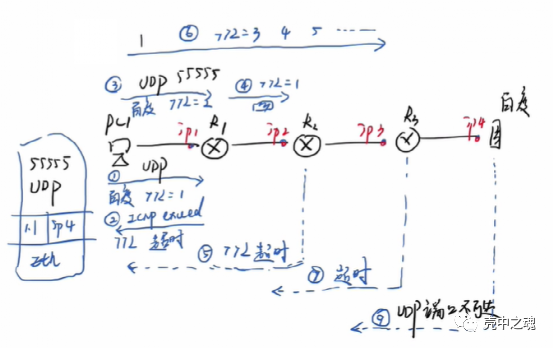 1 ⑥ TTL=3 4 5
③ UDP 55555 ④ TTL=1
百度
PC1 ip1 R1 ip2 R2 ip3 R3 ip4
55555
UDP
① UDP
百度 TTL=1
② ICMP exceed
TTL 超时
1.1 ip4
eth
⑤ TTL 超时
⑦ 超时
UDP 端口不可达
亮中之魂